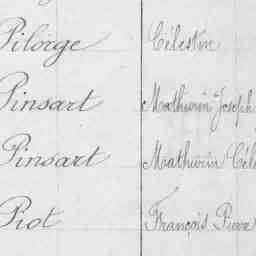 Pilorge Célestin
Pinsart Mathurin Joseph
Pinsart Mathurin Cél
Piot François Pierre